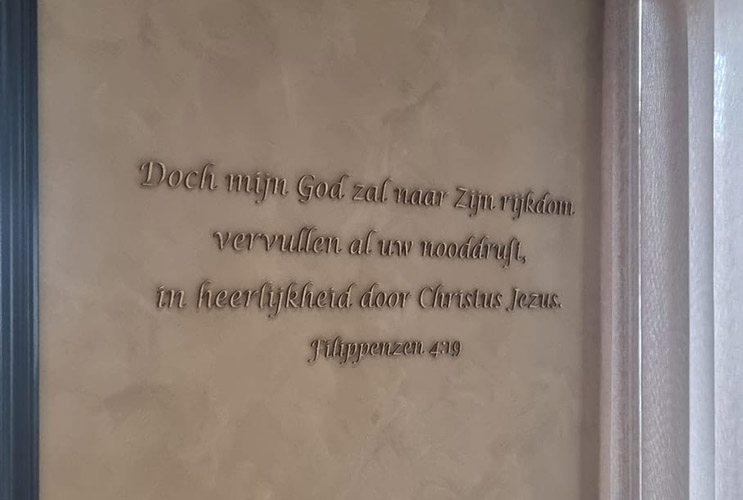 Doch mijn God zal naar Zijn rijkdom
vervullen al uw nooddruft,
in heerlijkheid door Christus Jezus.
Filippenzen 4:19